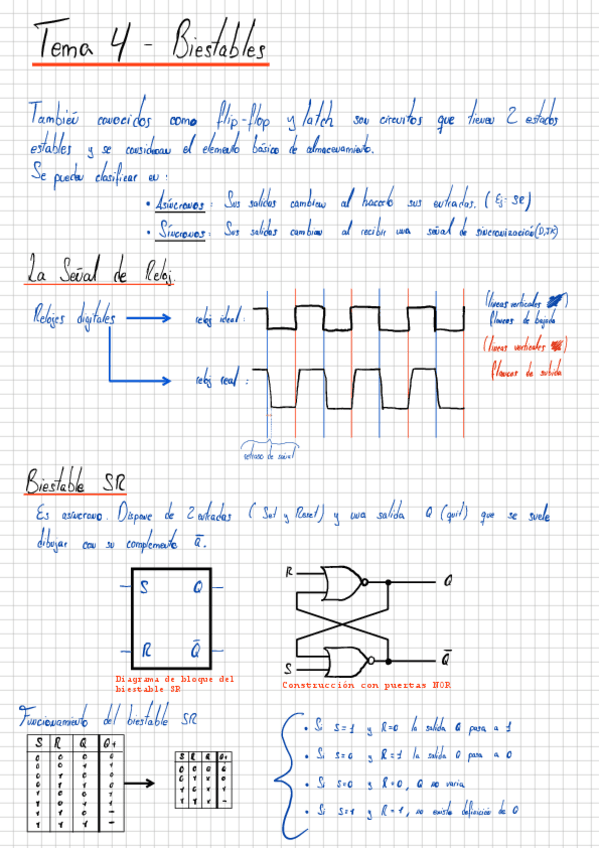 Tema 4 - Biestables
También conocidos como flip-flop y latch son circuitos que tienen 2 estados
estables y se consideran el elemento básico de almacenamiento.
Se pueden clasificar en:
• Asíncronos: Sus salidas cambian al hacerlo sus entradas. (Ej: SR)
• Síncronos: Sus salidas cambian al recibir una señal de sincronización (D, JK)
La Señal de Reloj.
Relojes digitales
reloj ideal:
(líneas verticales )
flancos de bajada
(líneas verticales )
flancos de subida
reloj real:
retraso de señal
Biestable SR
Es asíncrono. Dispone de 2 entradas (Set y Reset) y una salida Q (quit) que se suele
dibujar con su complemento Q̅.
S Q
R Q̅
Diagrama de bloque del
biestable SR
R Q
S Q̅
Construcción con puertas NOR
Funcionamiento del biestable SR
S R Q Q+
0 0 0 0
0 0 1 1
0 1 0 0
0 1 1 0
1 0 0 1
1 0 1 1
1 1 0 -
1 1 1 -
S R Q Q+
• Si S=1 y R=0 la salida Q pasa a 1
• Si S=0 y R=1 la salida Q pasa a 0
• Si S=0 y R=0, Q no varía
• Si S=1 y R=1, no existe definición de Q